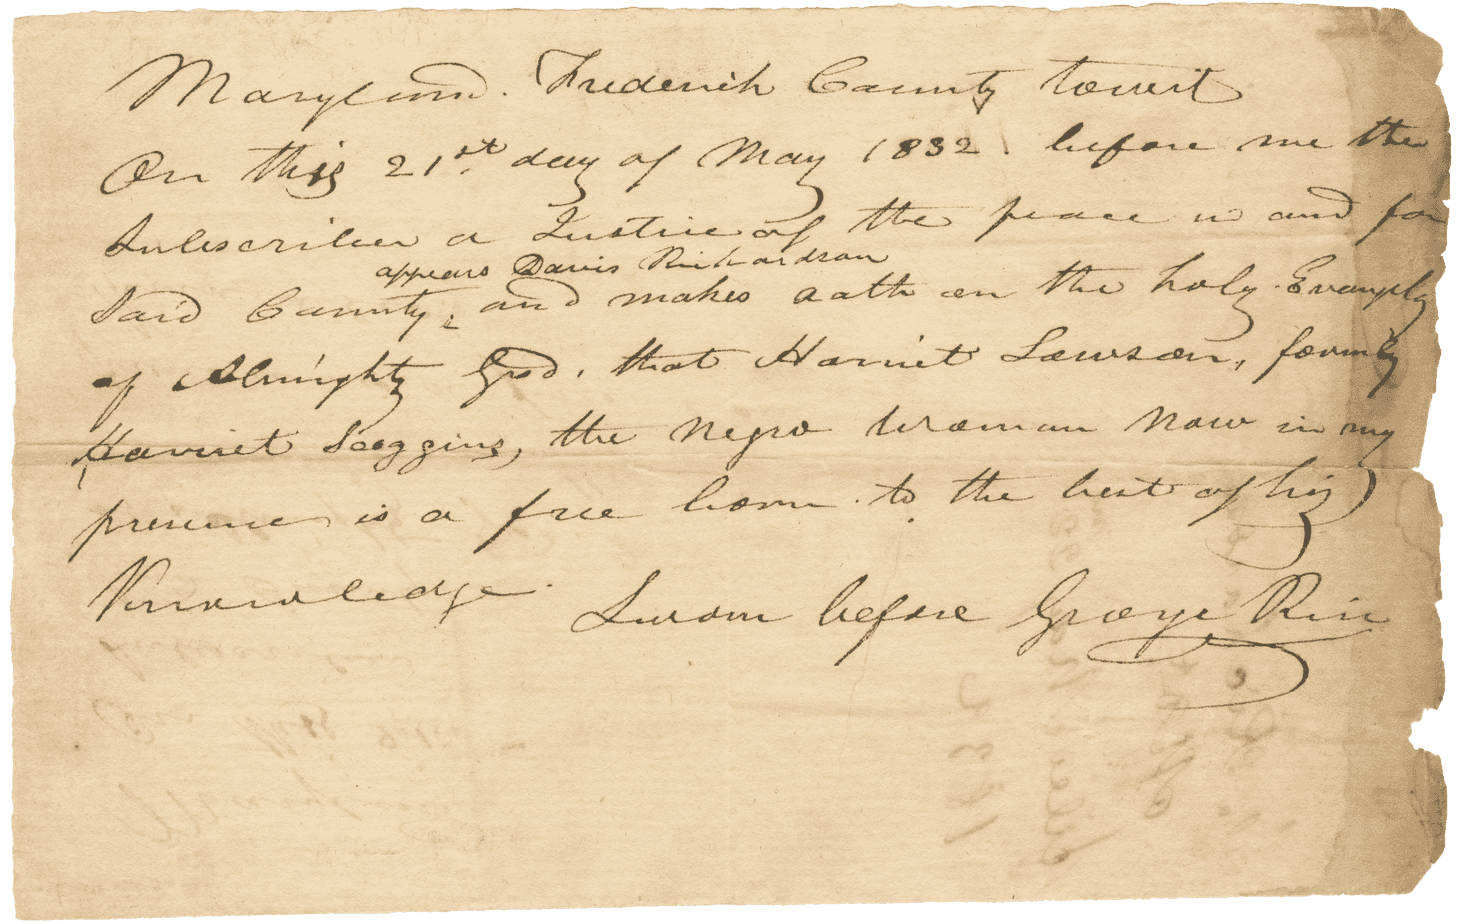 Maryland. Frederick County towit
On this 21st. day of May 1832. before me the
Subscriber a Justice of the peace in and for
appears Davis Richardson
Said County, and makes oath on the holy Evangely
of Almighty God, that Harriet Lawson, formerly
Harriet Scoggins, the negro woman Now in my
presence is a free born. to the best of his
Knowledge.
Sworn before George Rice